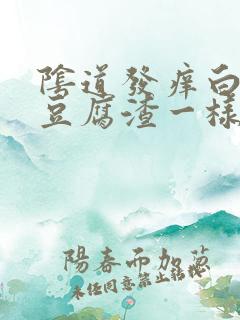 陰道發痒白
豆腐渣一樣
陽春而加蔥
未经同意禁止转载